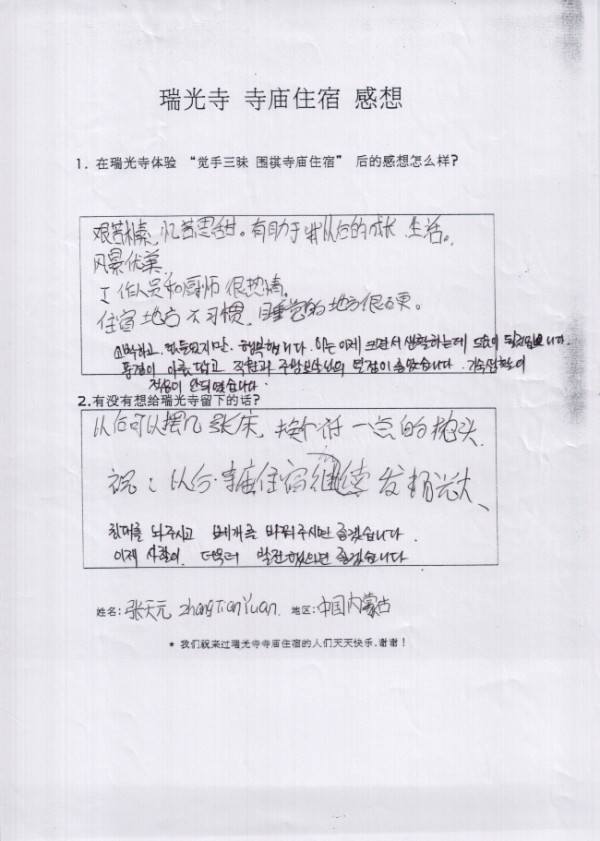 瑞光寺 寺庙住宿 感想
1. 在瑞光寺体验 “觉手三昧 围祺寺庙住宿” 后的感想怎么样?
艰苦朴素，忆苦思甜。有助于我以后的成长 生活。
风景优美.
工作人员和厨师很热情。
住宿地方不习惯，睡觉的地方很硬。
소박하고 힘들었지만 행복합니다. 이는 이제 크면서 생활하는데 도움이 될것입니다.
풍경이 아름답고 직원과 주방보살님의 열정이 좋았습니다. 기숙생활이
적응이 안되었습니다.
2.有没有想给瑞光寺留下的话?
以后可以摆几张床，换个好一点的枕头.
祝：以后寺庙住宿继续发扬光大、
침대를 놔주시고 베개를 바꿔주시면 좋겠습니다.
이제 사찰이 더욱더 발전했으면 좋겠습니다
姓名: 张天元 zhangTianYuan. 地区: 中国内蒙古
* 我们祝来过瑞光寺寺庙住宿的人们天天快乐,谢谢!